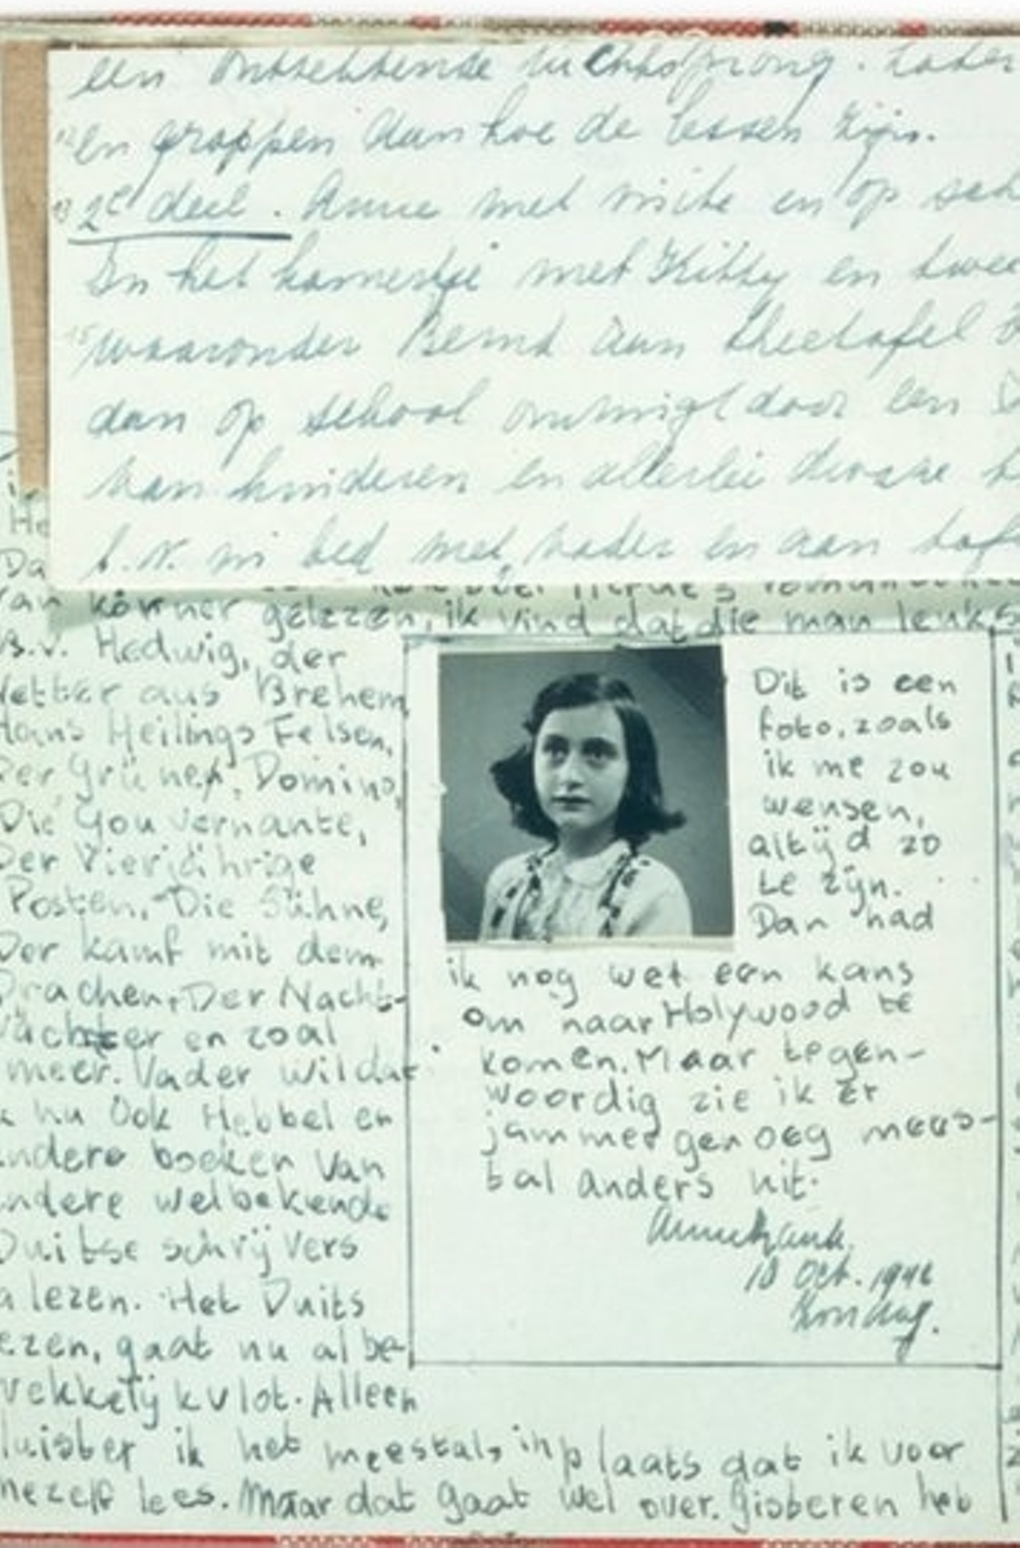 een ontzettende luchtsprong. Later
en grappen aan hoe de lessen zijn.
2e deel. Anne met visite en op sch
In het kamertje met Kitty en twee
waaronder Bernd aan theetafel
dan op school omringd door een
van kinderen en allerlei dwaze
b.v. in bed met vader en aan taf
He
Da
van Körner gelezen, ik vind dat die man leuk s
B.v. Hedwig, der
Vetter aus Brehem
Hans Heilings Felsen,
Der Grüne, Domino,
Die Gouvernante,
Der Vierjährige
Posten, Die Sühne,
Der kamf mit dem
Drachen, Der Nacht-
wächter en zoal
meer. Vader wil dat
k nu ook Hebbel en
andere boeken van
andere welbekende
Duitse schrijvers
a lezen. Het Duits
ezen, gaat nu al be-
rekkelijk vlot. Alleen
luister ik het meestal, inplaats dat ik voor
mezelf lees. Maar dat gaat wel over. Gisteren heb
Dit is een
foto, zoals
ik me zou
wensen,
altijd zo
te zijn.
Dan had
ik nog wel een kans
om naar Holywood te
komen. Maar tegen-
woordig zie ik er
jammer genoeg mees-
tal anders uit.
Annefrank.
10 Oct. 1942
Zondag.